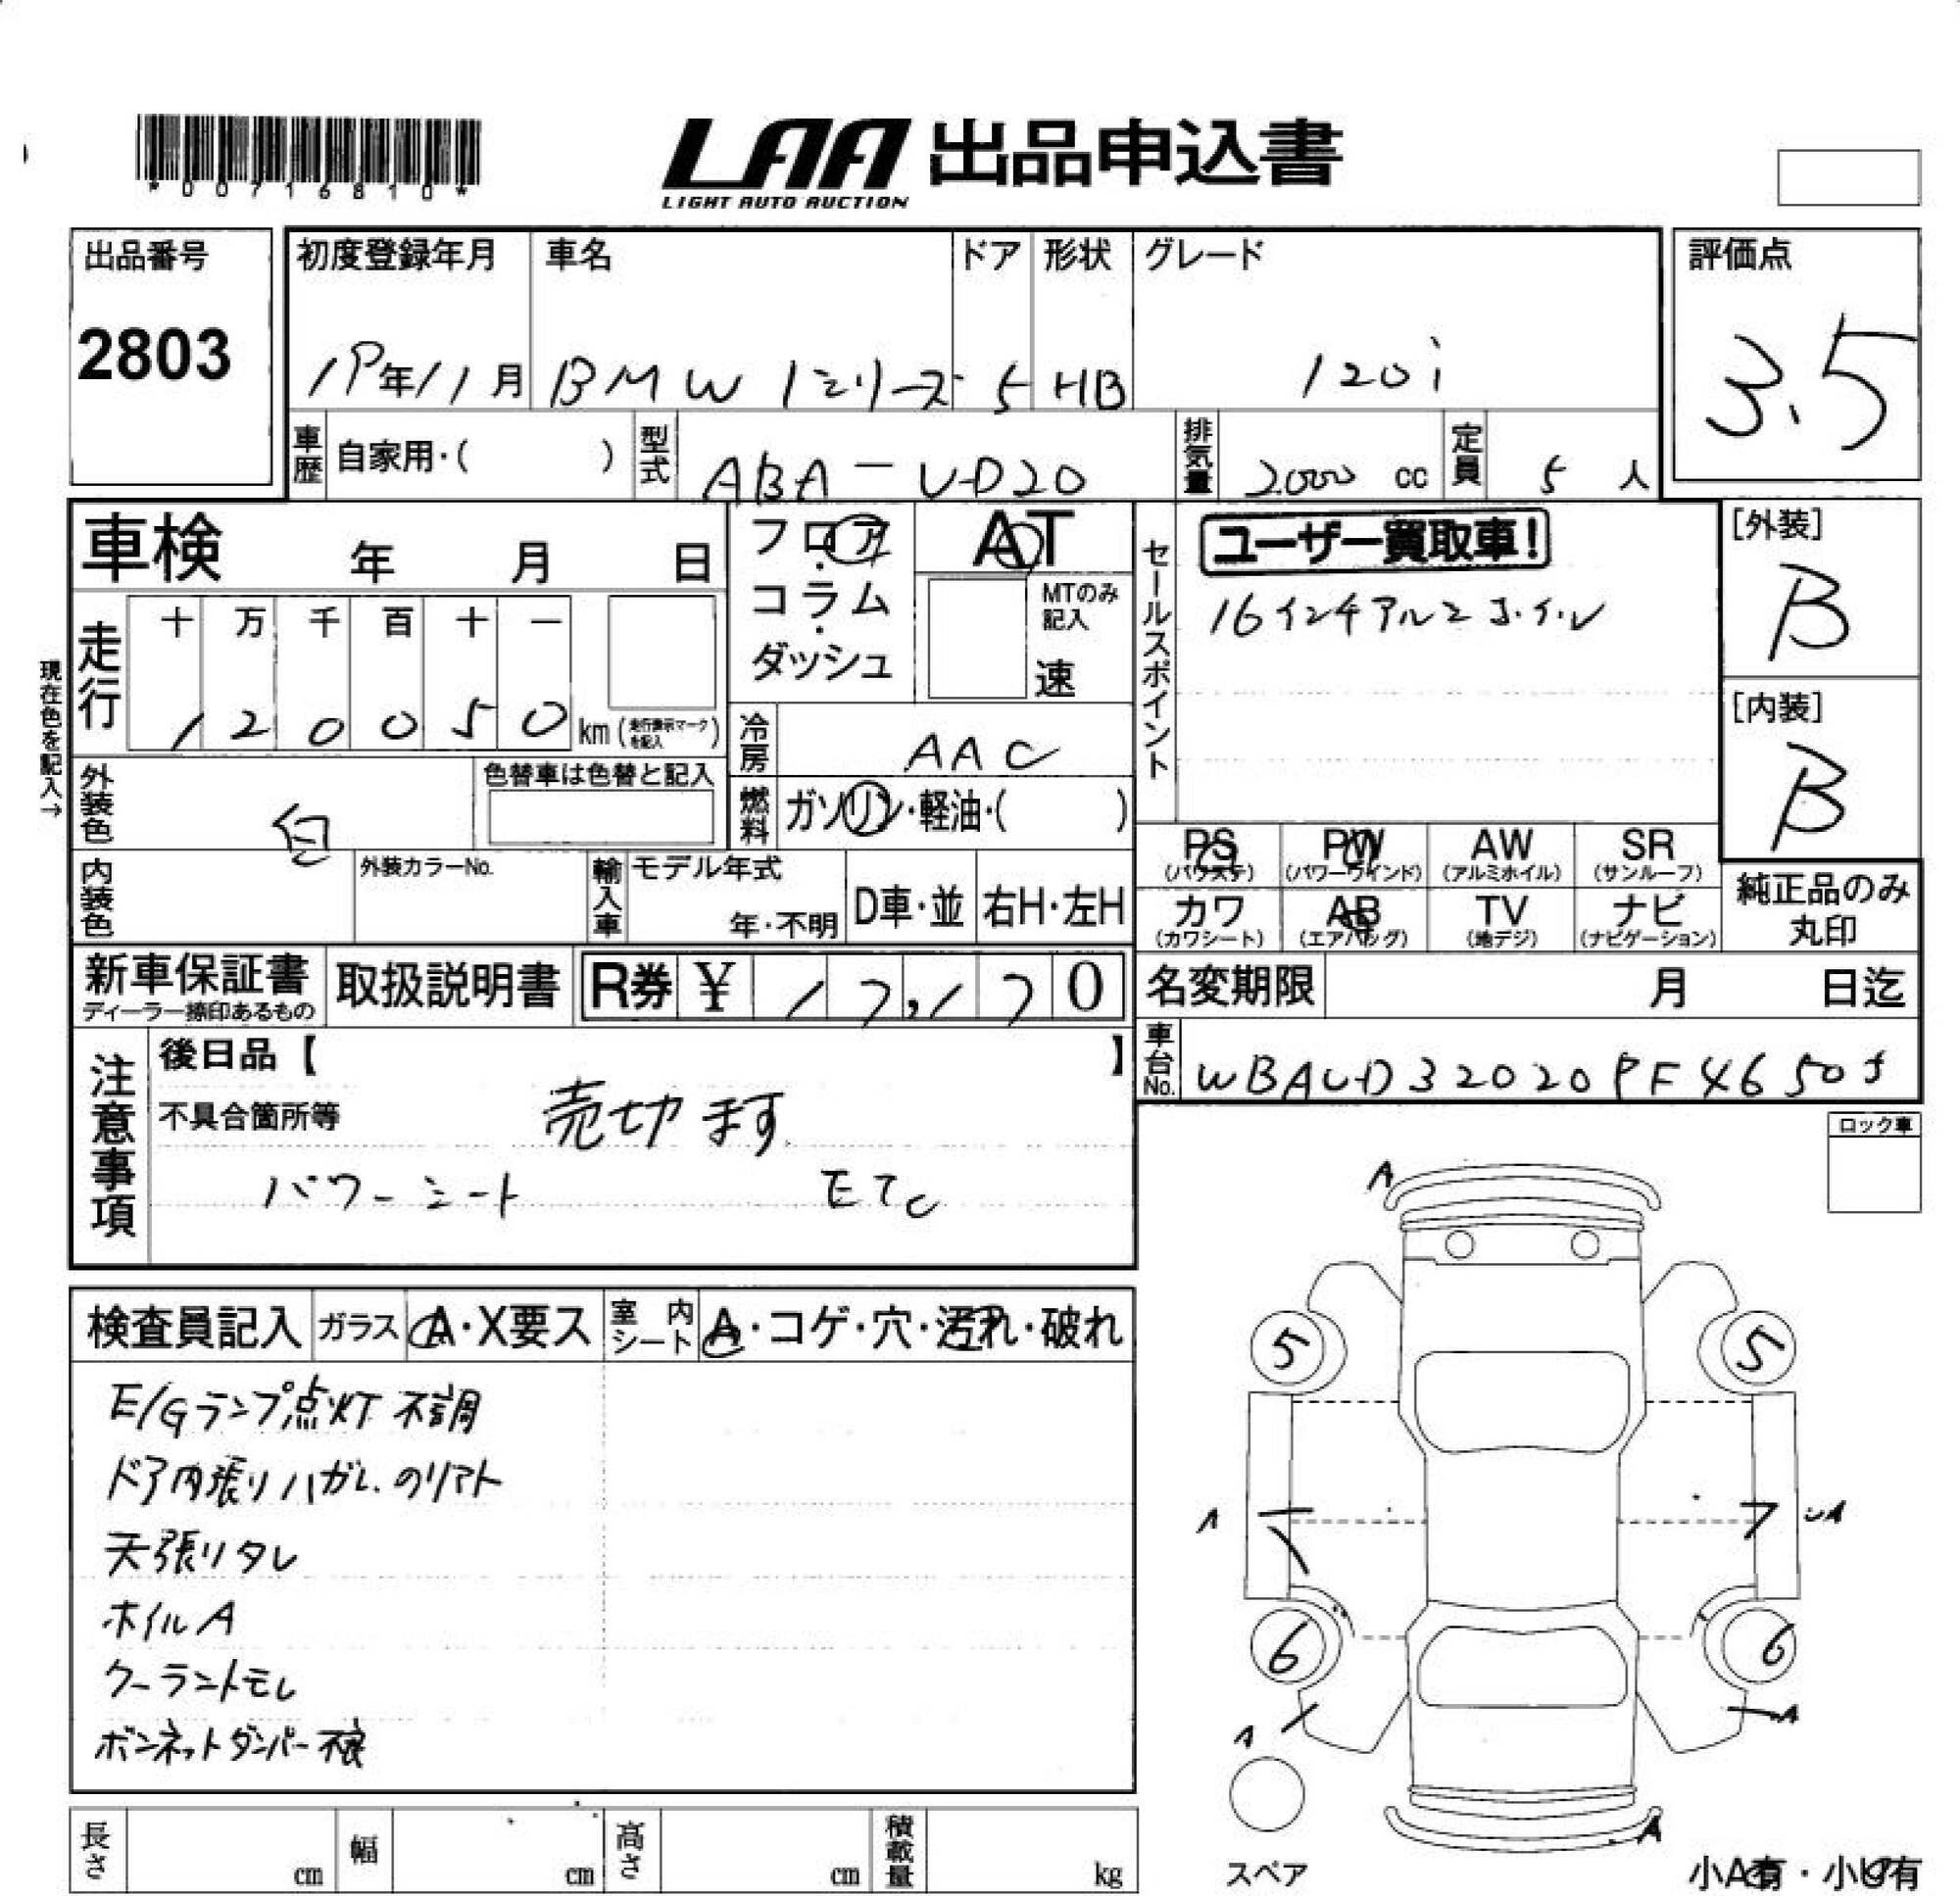 *00716810*
LAA 出品申込書
LIGHT AUTO AUCTION
出品番号
2803
初度登録年月
19年11月
車名
BMW 1シリーズ
ドア
5
形状
HB
グレード
120i
評価点
3.5
車歴
自家用・( )
型式
ABA-UD20
排気量
2000 cc
定員
5 人
車検 年 月 日
現在色を記入→
走行
十 万 千 百 十 一
1 2 0 0 5 0 km (走行表示マークを記入)
フロア・コラム・ダッシュ
AT
MTのみ記入
速
冷房
AAC
燃料
ガソリン・軽油・( )
セールスポイント
ユーザー買取車!
16インチアルミホイル
[外装]
B
[内装]
B
外装色
白
色替車は色替と記入
内装色
外装カラーNo.
輸入車
モデル年式
年・不明
D車・並
右H・左H
PS
(パワステ)
PW
(パワーウインド)
AW
(アルミホイル)
SR
(サンルーフ)
カワ
(カワシート)
AB
(エアバッグ)
TV
(地デジ)
ナビ
(ナビゲーション)
純正品のみ
丸印
新車保証書
ディーラー捺印あるもの
取扱説明書
R券 ¥ 17,170
名変期限 月 日迄
車台No.
注意事項
後日品【 】
不具合箇所等
売切ます
パワーシート ETC
ロック車
検査員記入
ガラス
A・X要ス
室内シート
A・コゲ・穴・汚れ・破れ
E/Gランプ点灯 不調
ドア内張リハガレ.のリアト
天張リタレ
ホイルA
クーラントモレ
ボンネットダンパー不良
A
5
5
A
A
6
6
A
A
A
スペア
小A有・小U有
長さ cm
幅 cm
高さ cm
積載量 kg